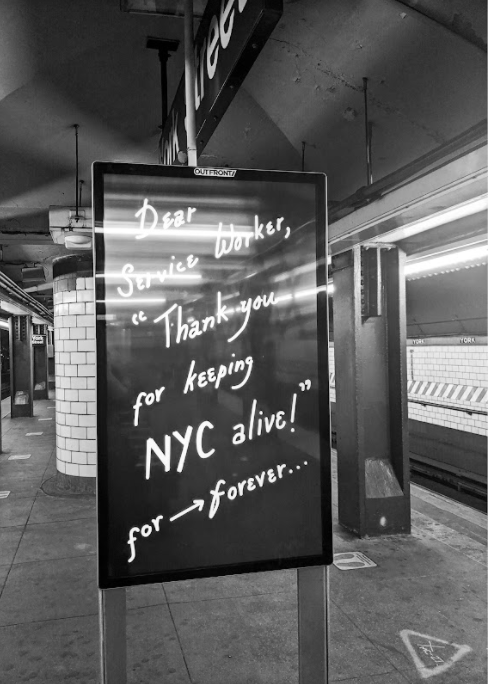 treet
OUTFRONT/
Dear
Service Worker,
“Thank you
for keeping
NYC alive!”
for → forever...
York
Street
YORK
YORK